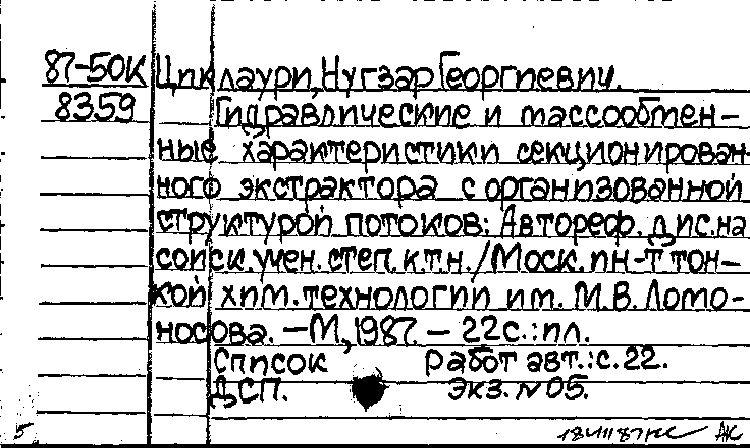 87-50К Циклаури, Нугзар Георгиевич.
8359 Гидравлические и массообмен-
ные характеристики секционирован-
ного экстрактора с организованной
структурой потоков: Автореф. дис. на
соиск. учен. степ. к.т.н. / Моск. ин-т тон-
кой хим. технологии им. М.В. Ломо-
носова. - М., 1987. - 22 с.: ил.
Список работ авт.: с. 22.
ДСП. Экз. № 05.
5